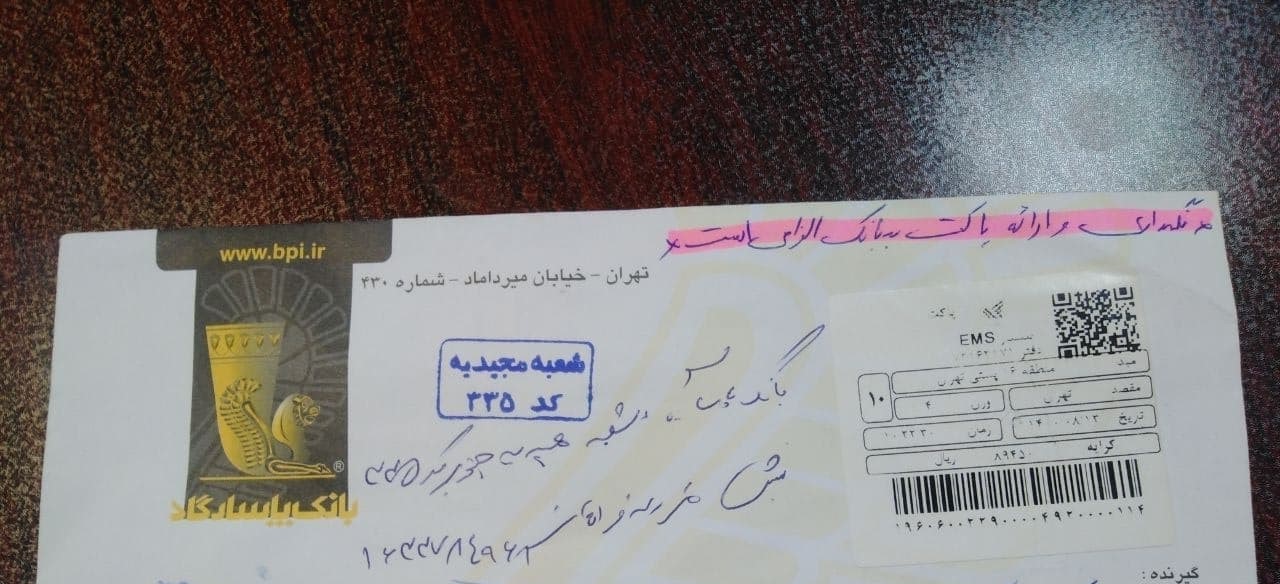 * نگهداری و ارائه پاکت به بانک الزامی است *
www.bpi.ir
تهران - خیابان میرداماد - شماره ۴۳۰
شعبه مجیدیه
کد ۳۳۵
بانک پاسارگاد
بانک پاسارگاد شعبه مجیدیه جنوبی کد ۳۳۵
نبش
۱۶۳۳۷۸۴۹۶۳
پاکت
EMS
دفتر
مبدا منطقه ۶ پستی تهران
۱۰
مقصد تهران
وزن ۴
تاریخ ۱۴۰۰۰۸۱۳
زمان ۱۰:۲۲:۳۰
کرایه ۸۹۴۵۰ ریال
۱۹۶۰۶۰۰۲۲۹۰۰۰۰۴۹۲۰۰۰۰۱۱۴
گیرنده :